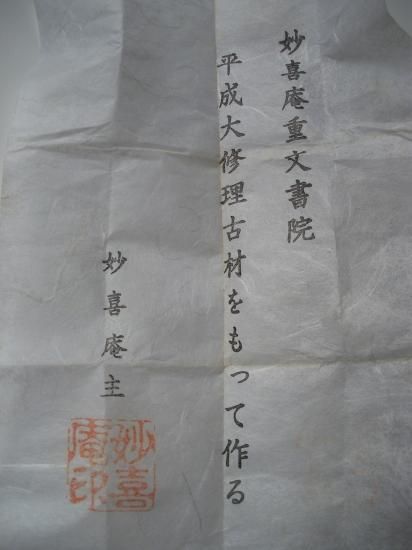 妙喜庵重文書院
平成大修理古材をもって作る
妙喜庵主
妙喜庵印